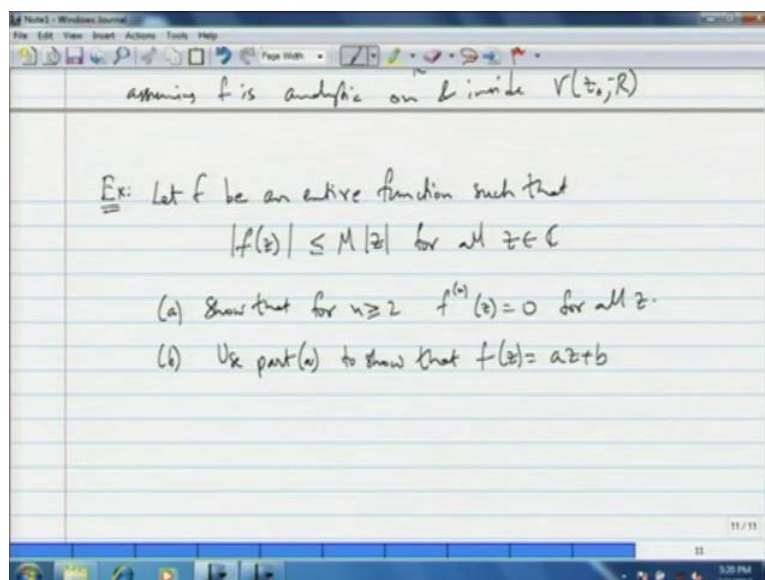 Note1 - Windows Journal
File Edit View Insert Actions Tools Help
Page Width
assuming f is analytic on & inside γ(z₀; R)
Ex: Let f be an entire function such that
|f(z)| ≤ M |z| for all z ∈ ℂ
(a) Show that for n ≥ 2 f⁽ⁿ⁾(z) = 0 for all z.
(b) Use part (a) to show that f(z) = az+b
11 / 11
11
3:20 PM